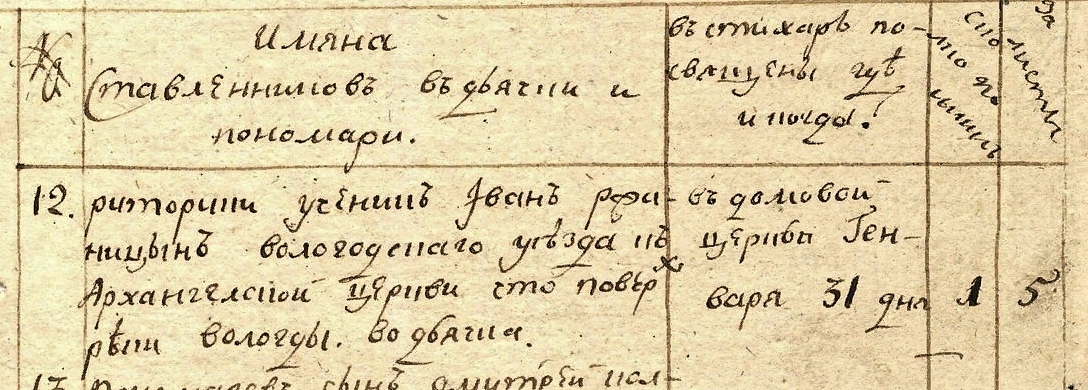 №
Имяна
Ставленниковъ въ дьячки и
пономари.
въ стихарь по-
священы гдѣ
и когда?
листы
12. риторики ученикъ Іванъ рфи-
ницынъ вологодскаго уѣзда къ
Архангелской церкви что поверх
рѣки вологды. во дьячка.
въ домовой
церкви Ген-
варя 31 дня
1
5
13. Пономаревъ сынъ дмитрей